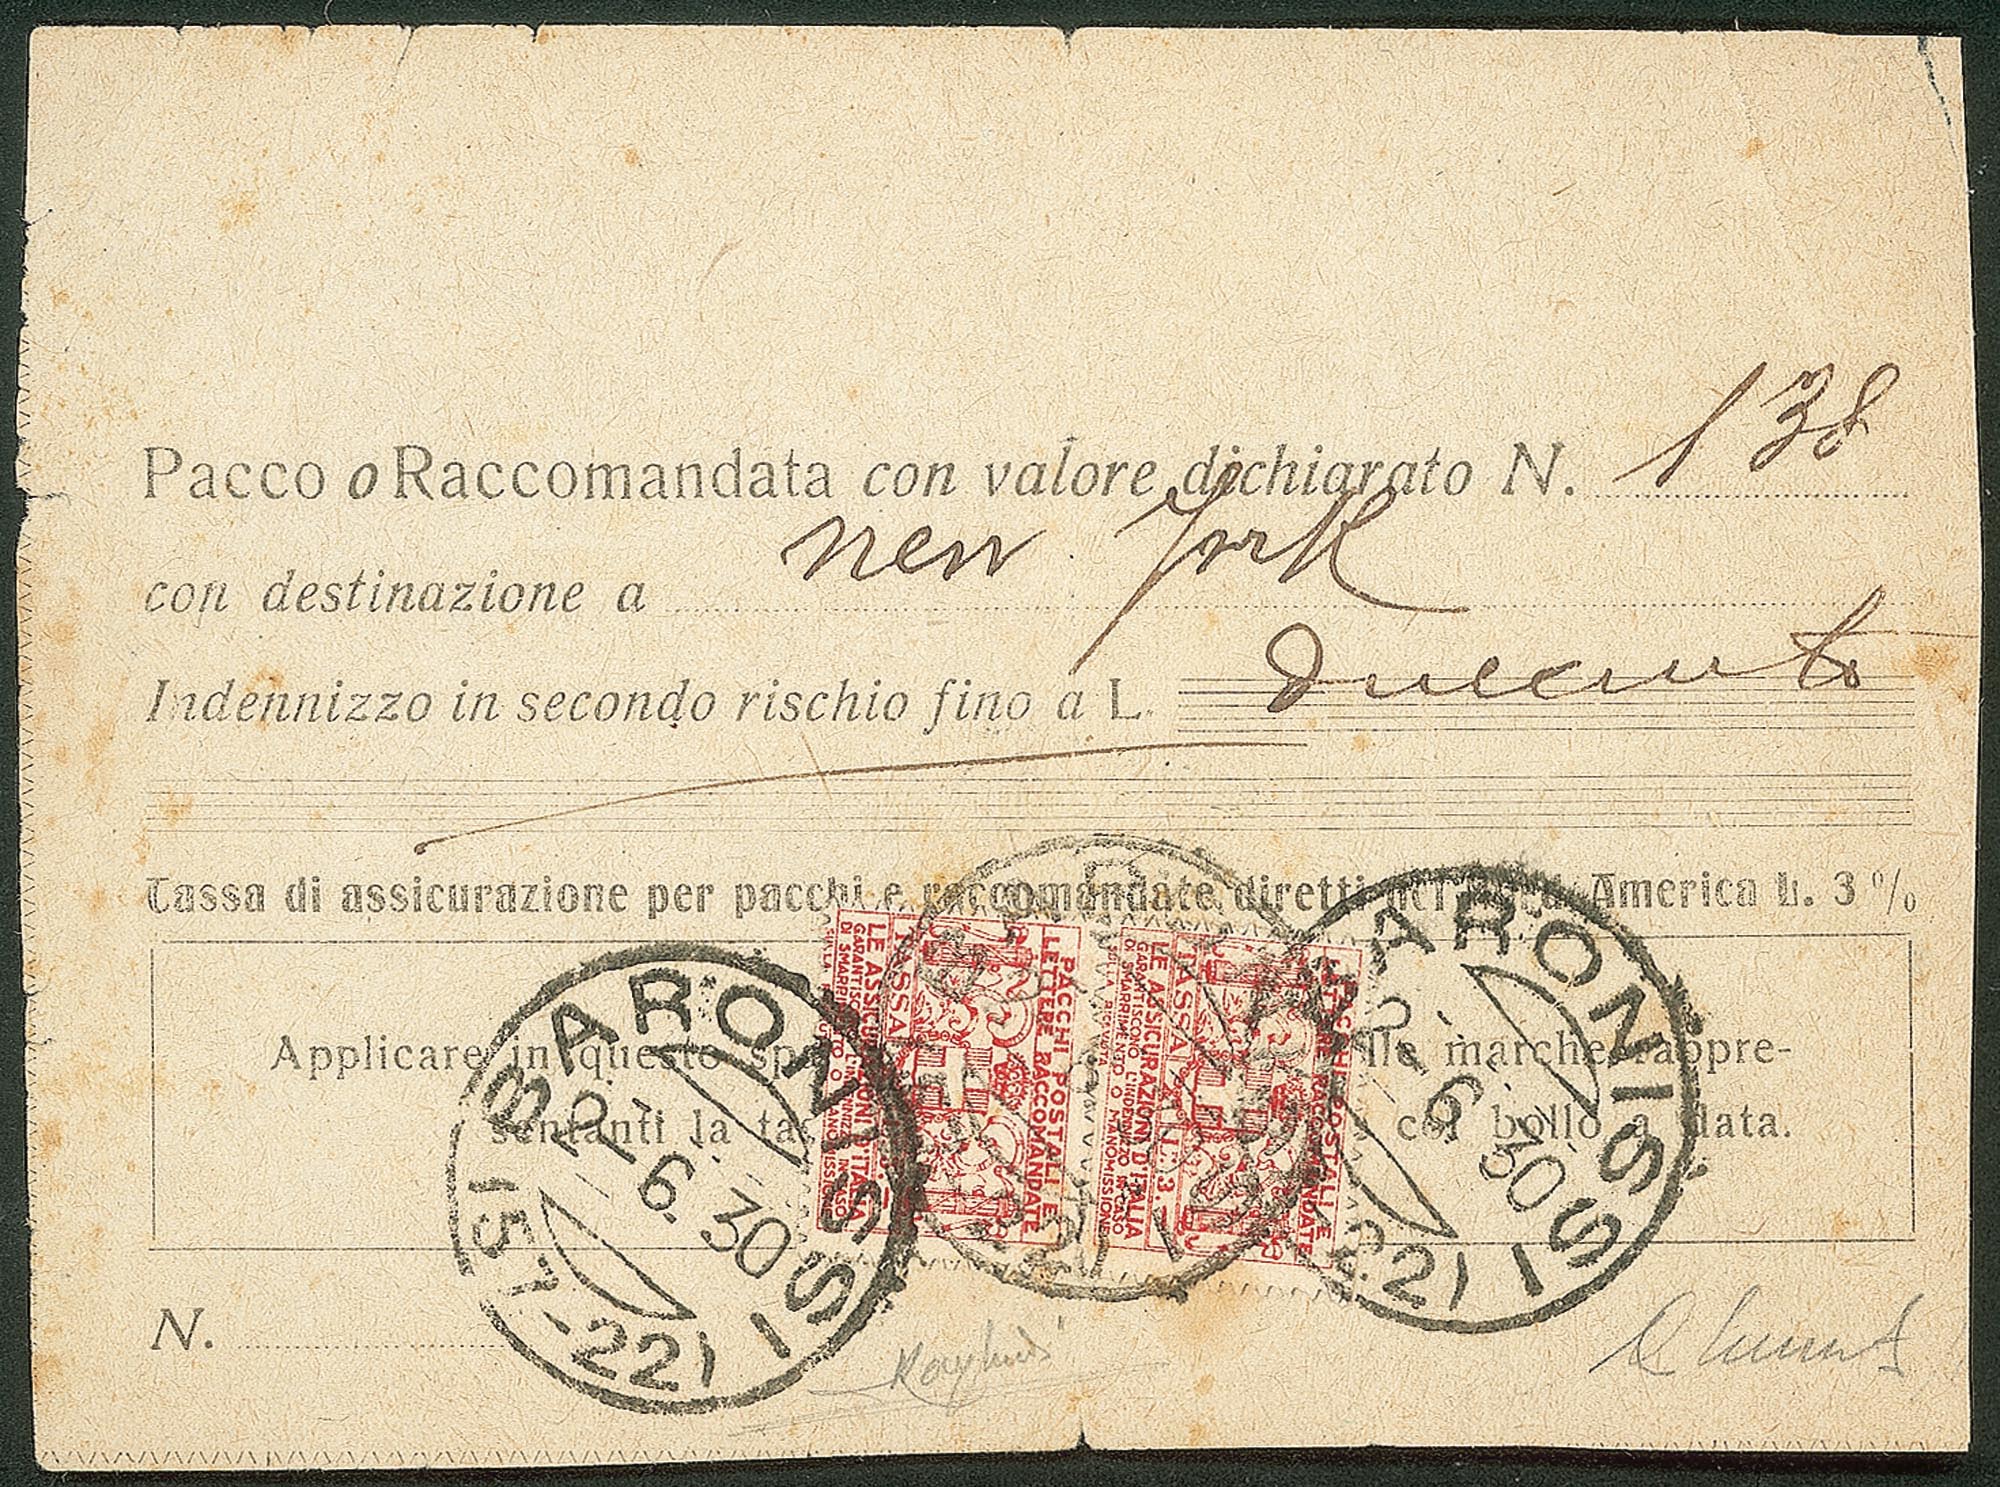 Pacco o Raccomandata con valore dichiarato N. 138
con destinazione a New York
Indennizzo in secondo rischio fino a L. Duecento
Tassa di assicurazione per pacchi e raccomandate diretti nel America L. 3 %
Applicare in questo lle marche rappre-
sentanti la col bollo a data.
PACCHI POSTALI E
LETTERE RACCOMANDATE
TASSA
LE ASSICURAZIONI D'ITALIA
GARANTISCONO L'INDENNIZZO IN CASO
DI SMARRIMENTO O MANOMISSIONE
PACCHI POSTALI E
LETTERE RACCOMANDATE
TASSA L. 3.
LE ASSICURAZIONI D'ITALIA
GARANTISCONO L'INDENNIZZO IN CASO
DI SMARRIMENTO O MANOMISSIONE
BARONISSI
12-6.30
157-221
BARONISSI
12-6.30
221
N.